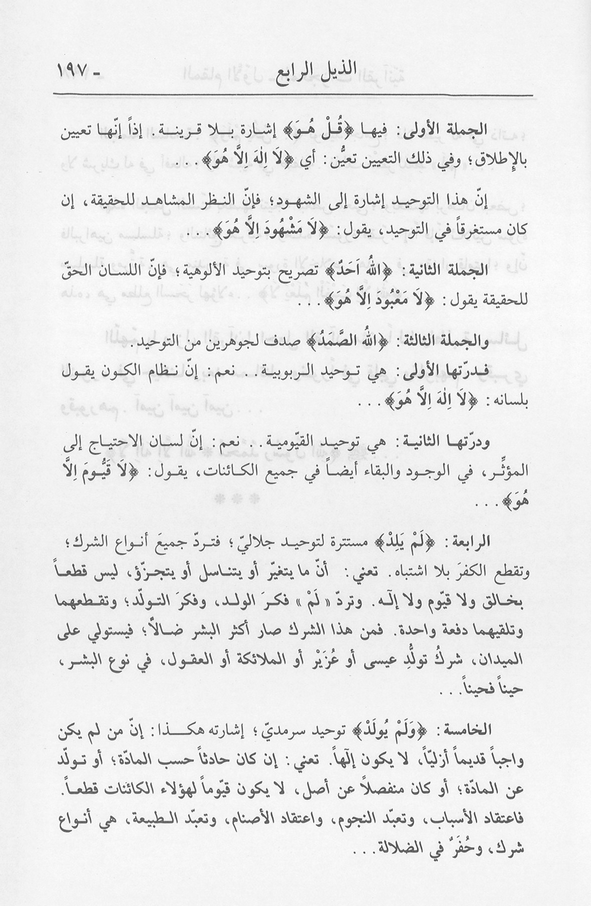 الذيل الرابع - ١٩٧
الجملة الأولى: فيها ﴿قُلْ هُوَ﴾ إشارة بـلا قرينة. إذاً إنّها تعيين
بالإطلاق؛ وفي ذلك التعيين تعيُّن: أي ﴿لَا اِلٰهَ اِلَّا هُوَ﴾...
إنّ هذا التوحيد إشارة إلى الشهود؛ فإنّ النظر المشاهد للحقيقة، إن
كان مستغرقاً في التوحيد، يقول: ﴿لَا مَشْهُودَ اِلَّا هُوَ﴾...
الجملة الثانية: ﴿اللهُ اَحَدٌ﴾ تصريح بتوحيد الألوهية؛ فإنّ اللسان الحقّ
للحقيقة يقول: ﴿لَا مَعْبُودَ اِلَّا هُوَ﴾...
والجملة الثالثة: ﴿اللهُ الصَّمَدُ﴾ صدف لجوهرين من التوحيد.
فـدرّتها الأولى: هي توحيد الربوبية.. نعم: إنّ نظام الكون يقول
بلسانه: ﴿لَا اِلٰهَ اِلَّا هُوَ﴾...
ودرّتها الثانية: هي توحيد القيّومية.. نعم: إنّ لسان الاحتياج إلى
المؤثّـر، في الوجود والبقاء أيضـاً في جميع الكـائنات، يقول: ﴿لَا قَيُّومَ اِلَّا
هُوَ﴾...
الرابعة: ﴿لَمْ يَلِدْ﴾ مستترة لتوحيـد جلاليّ؛ فتـردّ جميعَ أنـواع الشرك؛
وتقطع الكفرَ بلا اشتباه. تعني: أنّ ما يتغيّر أو يتناسل أو يتجـزّؤ، ليس قطعـاً
بخـالق ولا قيّوم ولا إلٰـه. وتردّ «لَمْ» فكـرَ الولـد، وفكرَ التـولّد؛ وتـقطعهما
وتلقيهما دفعة واحدة. فمن هذا الشرك صار أكثر البشر ضـالّاً؛ فيستولي على
الميدان، شركُ تولُّدِ عيسى أو عُزَيْر أو الملائكة أو العقول، في نوع البشر،
حيناً فحيناً...
الخامسة: ﴿وَلَمْ يُولَدْ﴾ توحيد سرمديّ؛ إشارته هكـذا: إنّ من لم يكن
واجباً قديماً أزليّاً، لا يكون إلٰهاً. تعني: إن كان حادثاً حسب المادّة؛ أو تـولّد
عن المادّة؛ أو كان منفصلاً عن أصل، لا يكون قيّوماً لهؤلاء الكائنات قطعـاً.
فاعتقاد الأسباب، وتعبّد النجوم، واعتقاد الأصنام، وتعبّد الـطبيعة، هي أنـواع
شرك، وحُفَرٌ في الضلالة...